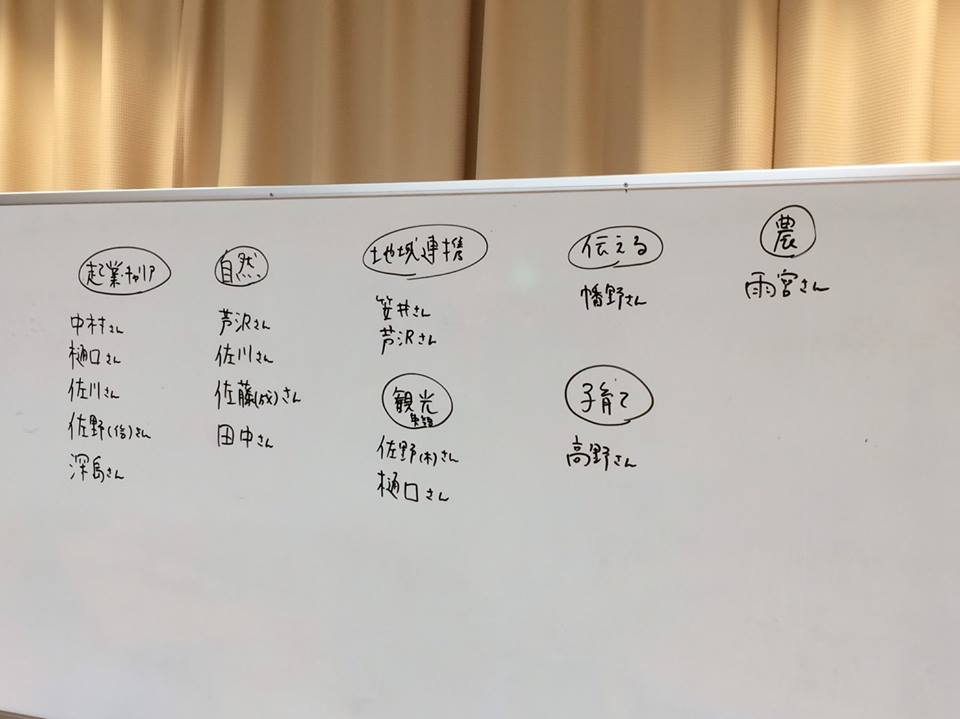 起業・キャリア
中村さん
樋口さん
佐川さん
佐野(信)さん
深島さん
自然
芦沢さん
佐川さん
佐藤(成)さん
田中さん
地域連携
笠井さん
芦沢さん
観光
佐野(木)さん
樋口さん
伝える
幡野さん
子育て
高野さん
農
雨宮さん